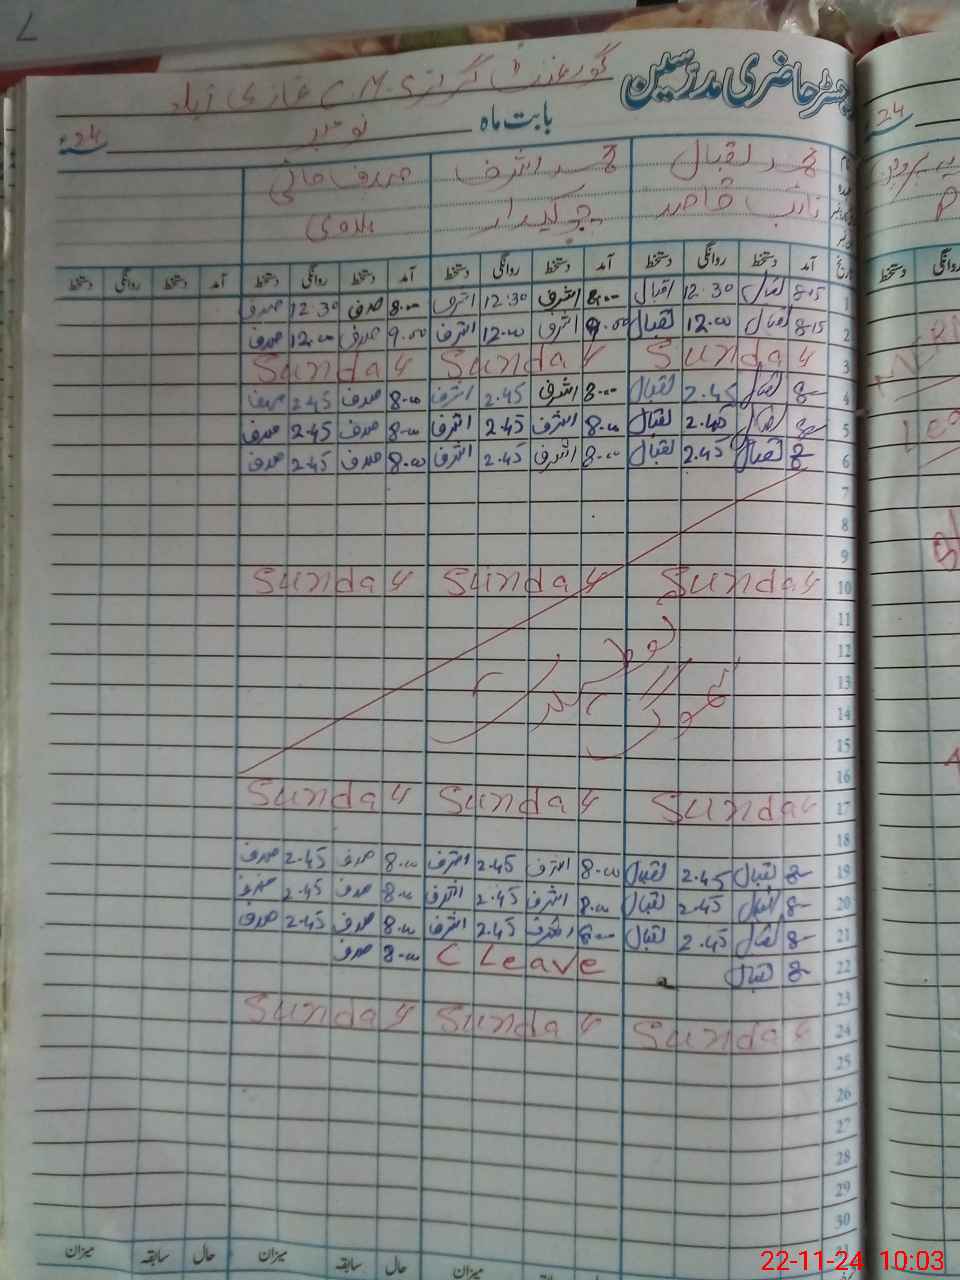 رجسٹر حاضری مدرسین
گورنمنٹ گرلز
بابت ماہ نومبر 24
محمد اقبال محمد اشرف صدف
نائب قاصد چوکیدار
آمد دستخط روانگی دستخط آمد دستخط روانگی دستخط آمد دستخط روانگی دستخط آمد دستخط روانگی دستخط
1 8-15 اقبال 12:30 اقبال 8.00 اشرف 12:30 اشرف 8.00 صدف 12:30 صدف
2 8-15 اقبال 12.00 اقبال 9.00 اشرف 12.00 اشرف 9.00 صدف 12.00 صدف
3 Sunday Sunday Sunday
4 8- اقبال 2.45 اقبال 8.00 اشرف 2.45 اشرف 8.00 صدف 2.45 صدف
5 8- اقبال 2.45 اقبال 8.00 اشرف 2.45 اشرف 8.00 صدف 2.45 صدف
6 8- اقبال 2.45 اقبال 8.00 اشرف 2.45 اشرف 8.00 صدف 2.45 صدف
7
8
9
10 Sunday Sunday Sunday
11
12
13
14
15
16
17 Sunday Sunday Sunday
18
19 8- اقبال 2.45 اقبال 8.00 اشرف 2.45 اشرف 8.00 صدف 2.45 صدف
20 8- اقبال 2.45 اقبال 8.00 اشرف 2.45 اشرف 8.00 صدف 2.45 صدف
21 8- اقبال 2.45 اقبال 8.00 اشرف 2.45 اشرف 8.00 صدف 2.45 صدف
22 8- اقبال C Leave 8.00 صدف
23
24 Sunday Sunday Sunday
25
26
27
28
29
30
حال سابقہ میزان حال سابقہ میزان
22-11-24 10:03